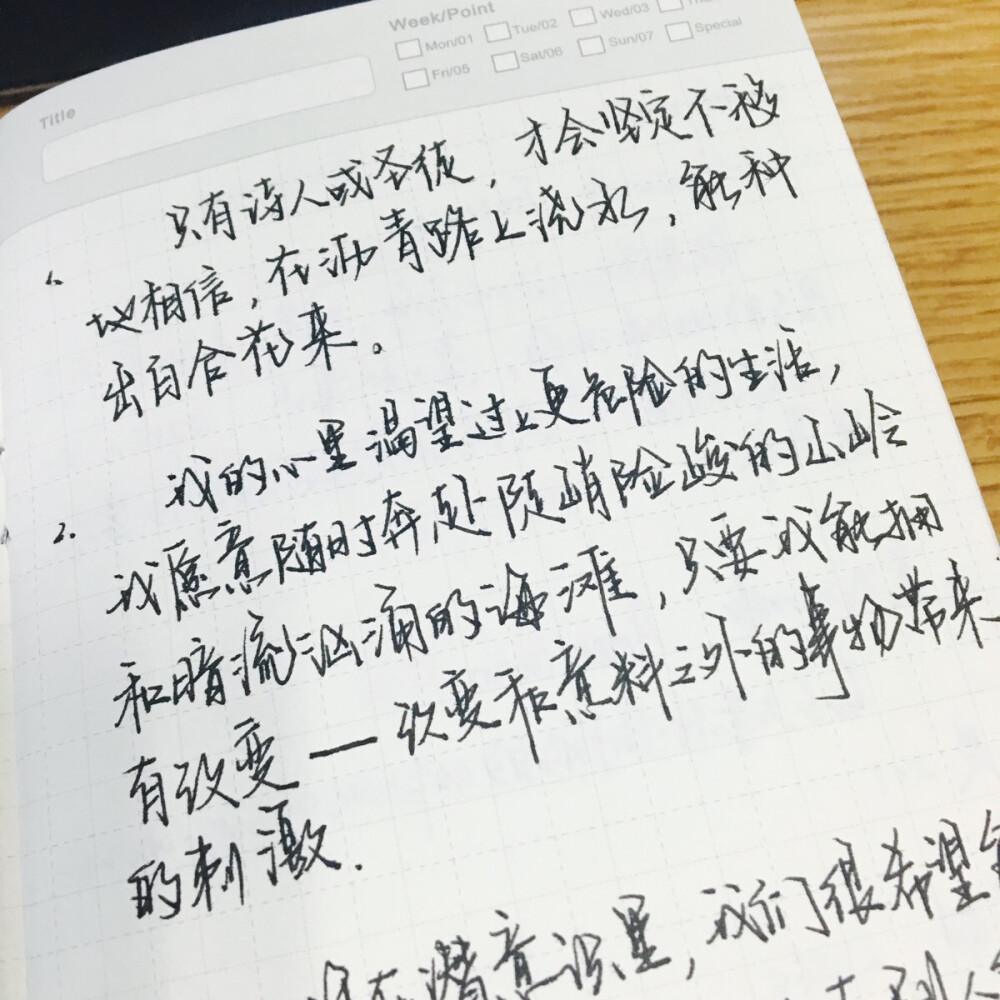 Week/Point
Mon/01 Tue/02 Wed/03
Fri/05 Sat/06 Sun/07 Special
Title
只有诗人或圣徒，才会坚定不移
1.
地相信，在沥青路上浇水，能种
出百合花来。
我的心里渴望过上更危险的生活，
2.
我愿意随时奔赴陡峭险峻的山岭
和暗流汹涌的海滩，只要我能拥
有改变——改变和意料之外的事物带来
的刺激.
在潜意识里，我们很希望